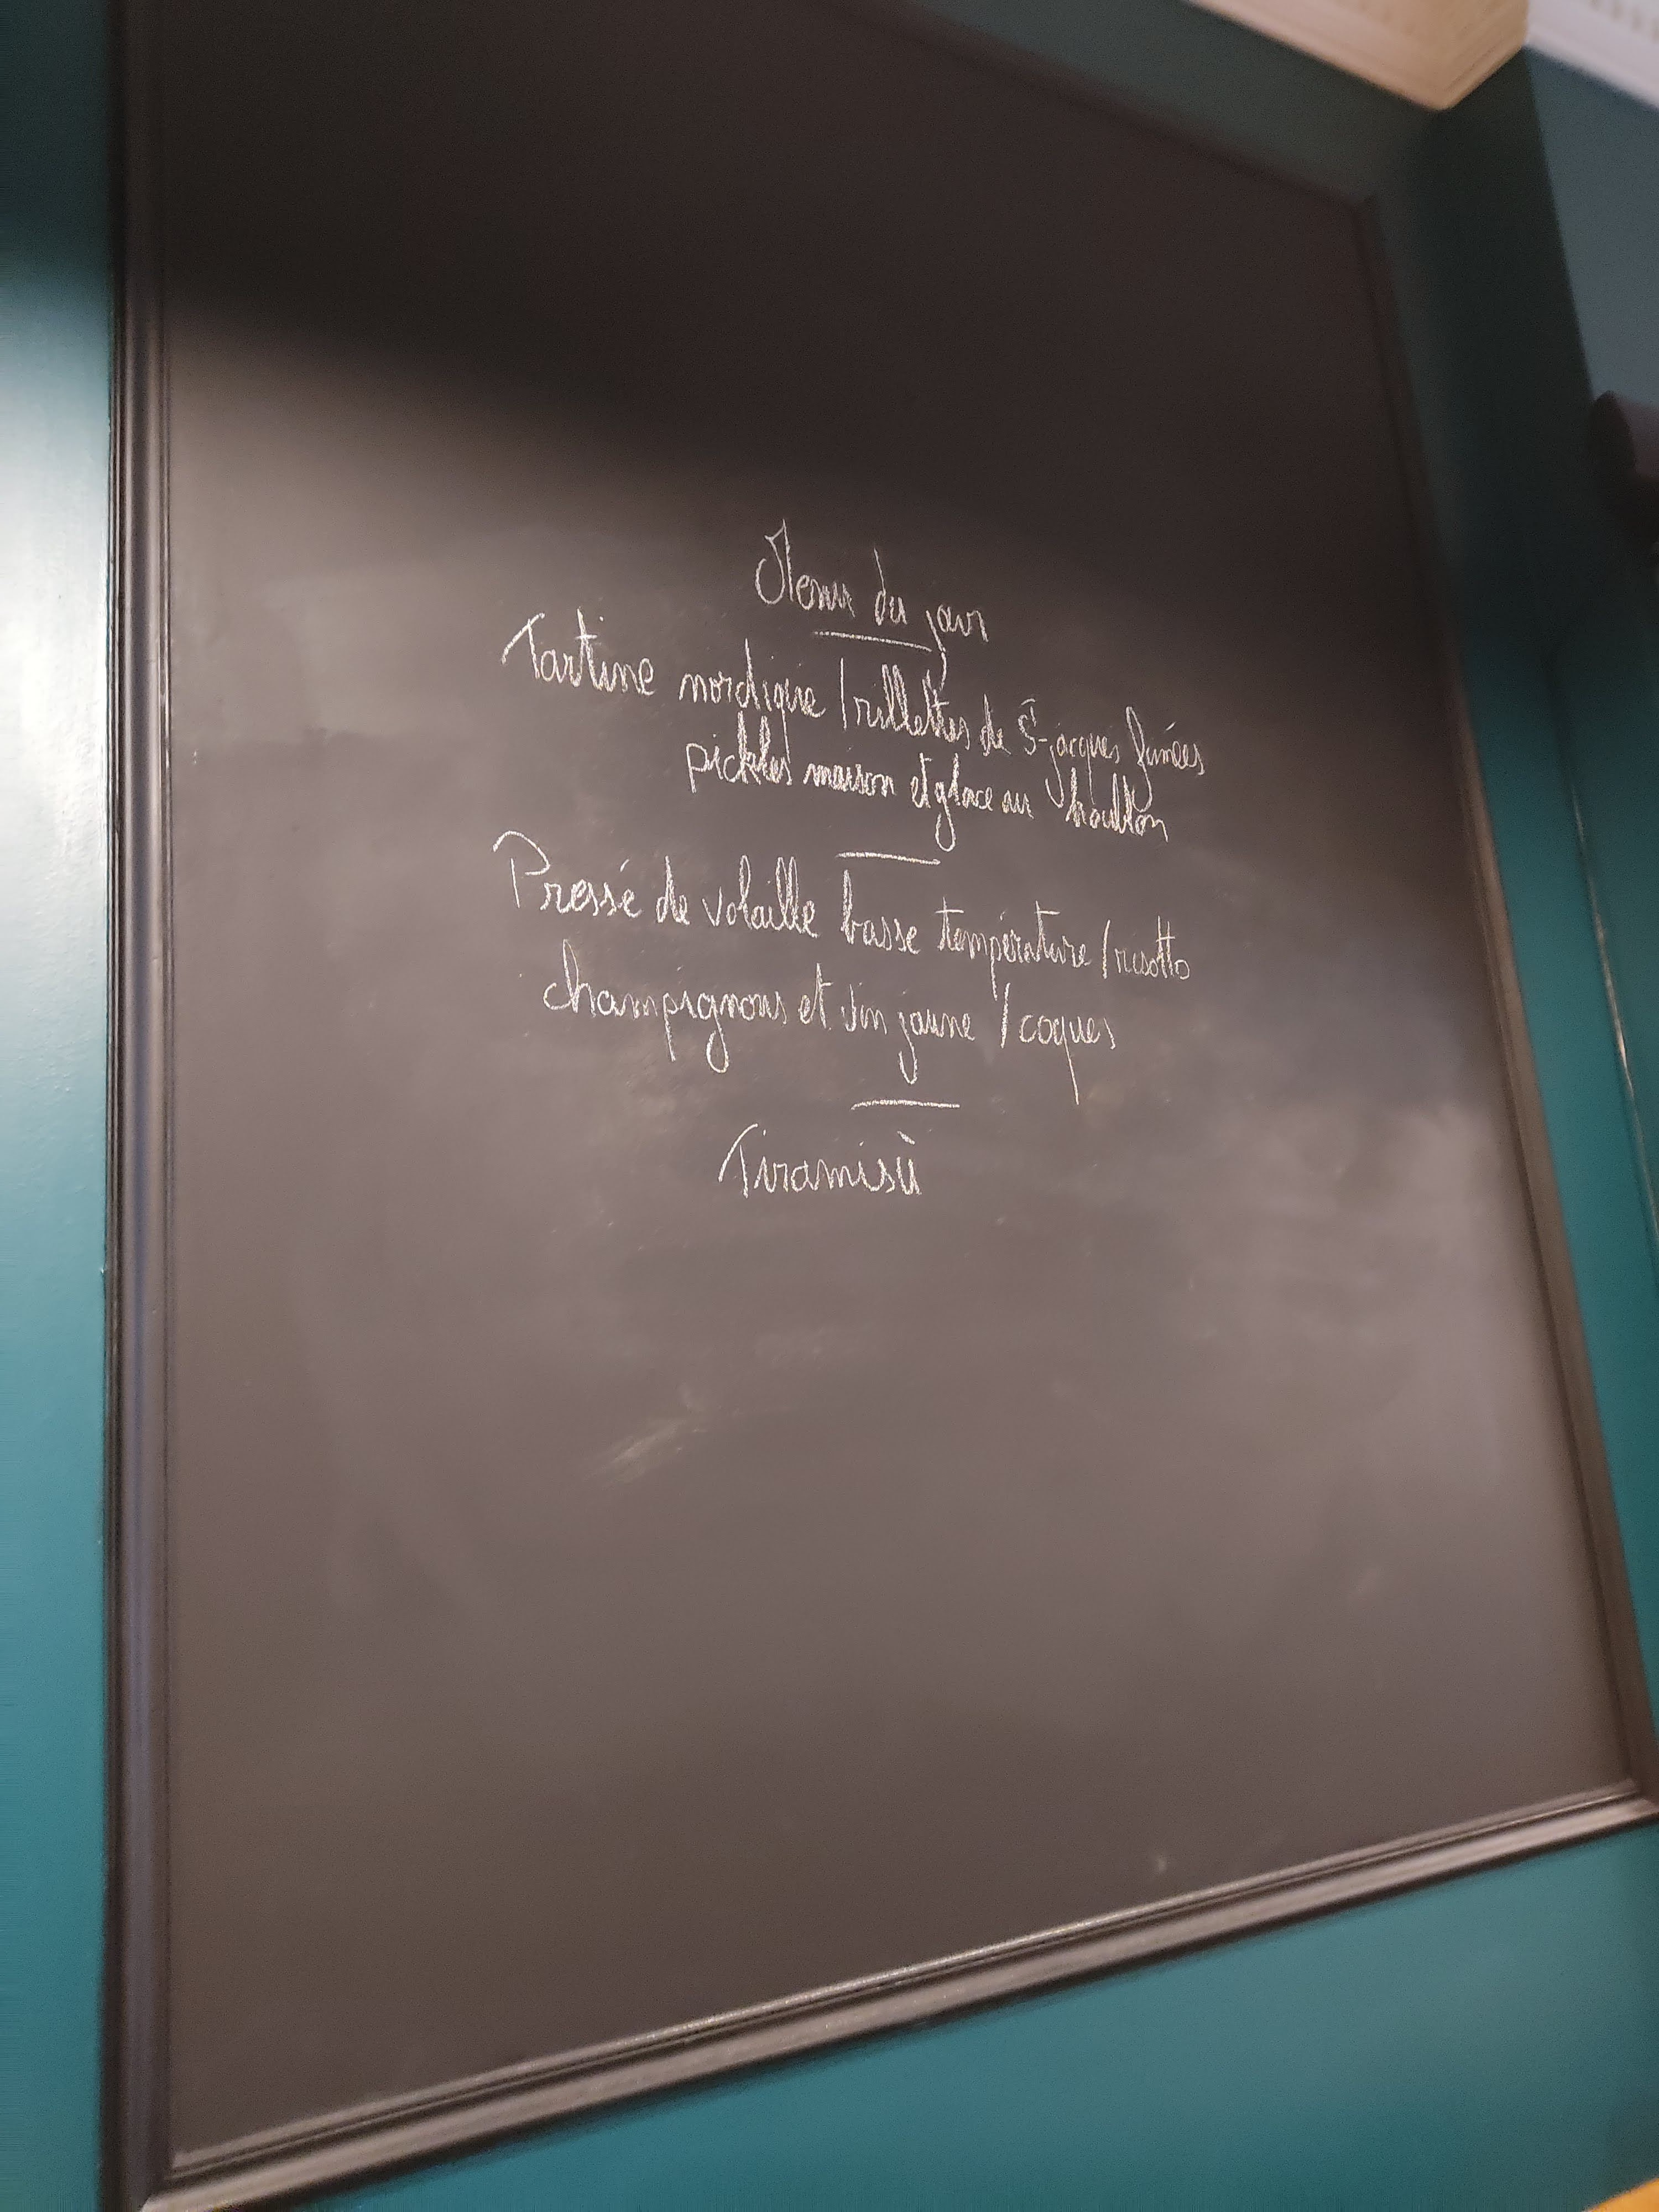 Menu du jour
Tartine nordique / rillettes de St-jacques fumées
pickles maison et glace au houblon
Pressé de volaille basse température / risotto
champignons et vin jaune / coques
Tiramisù